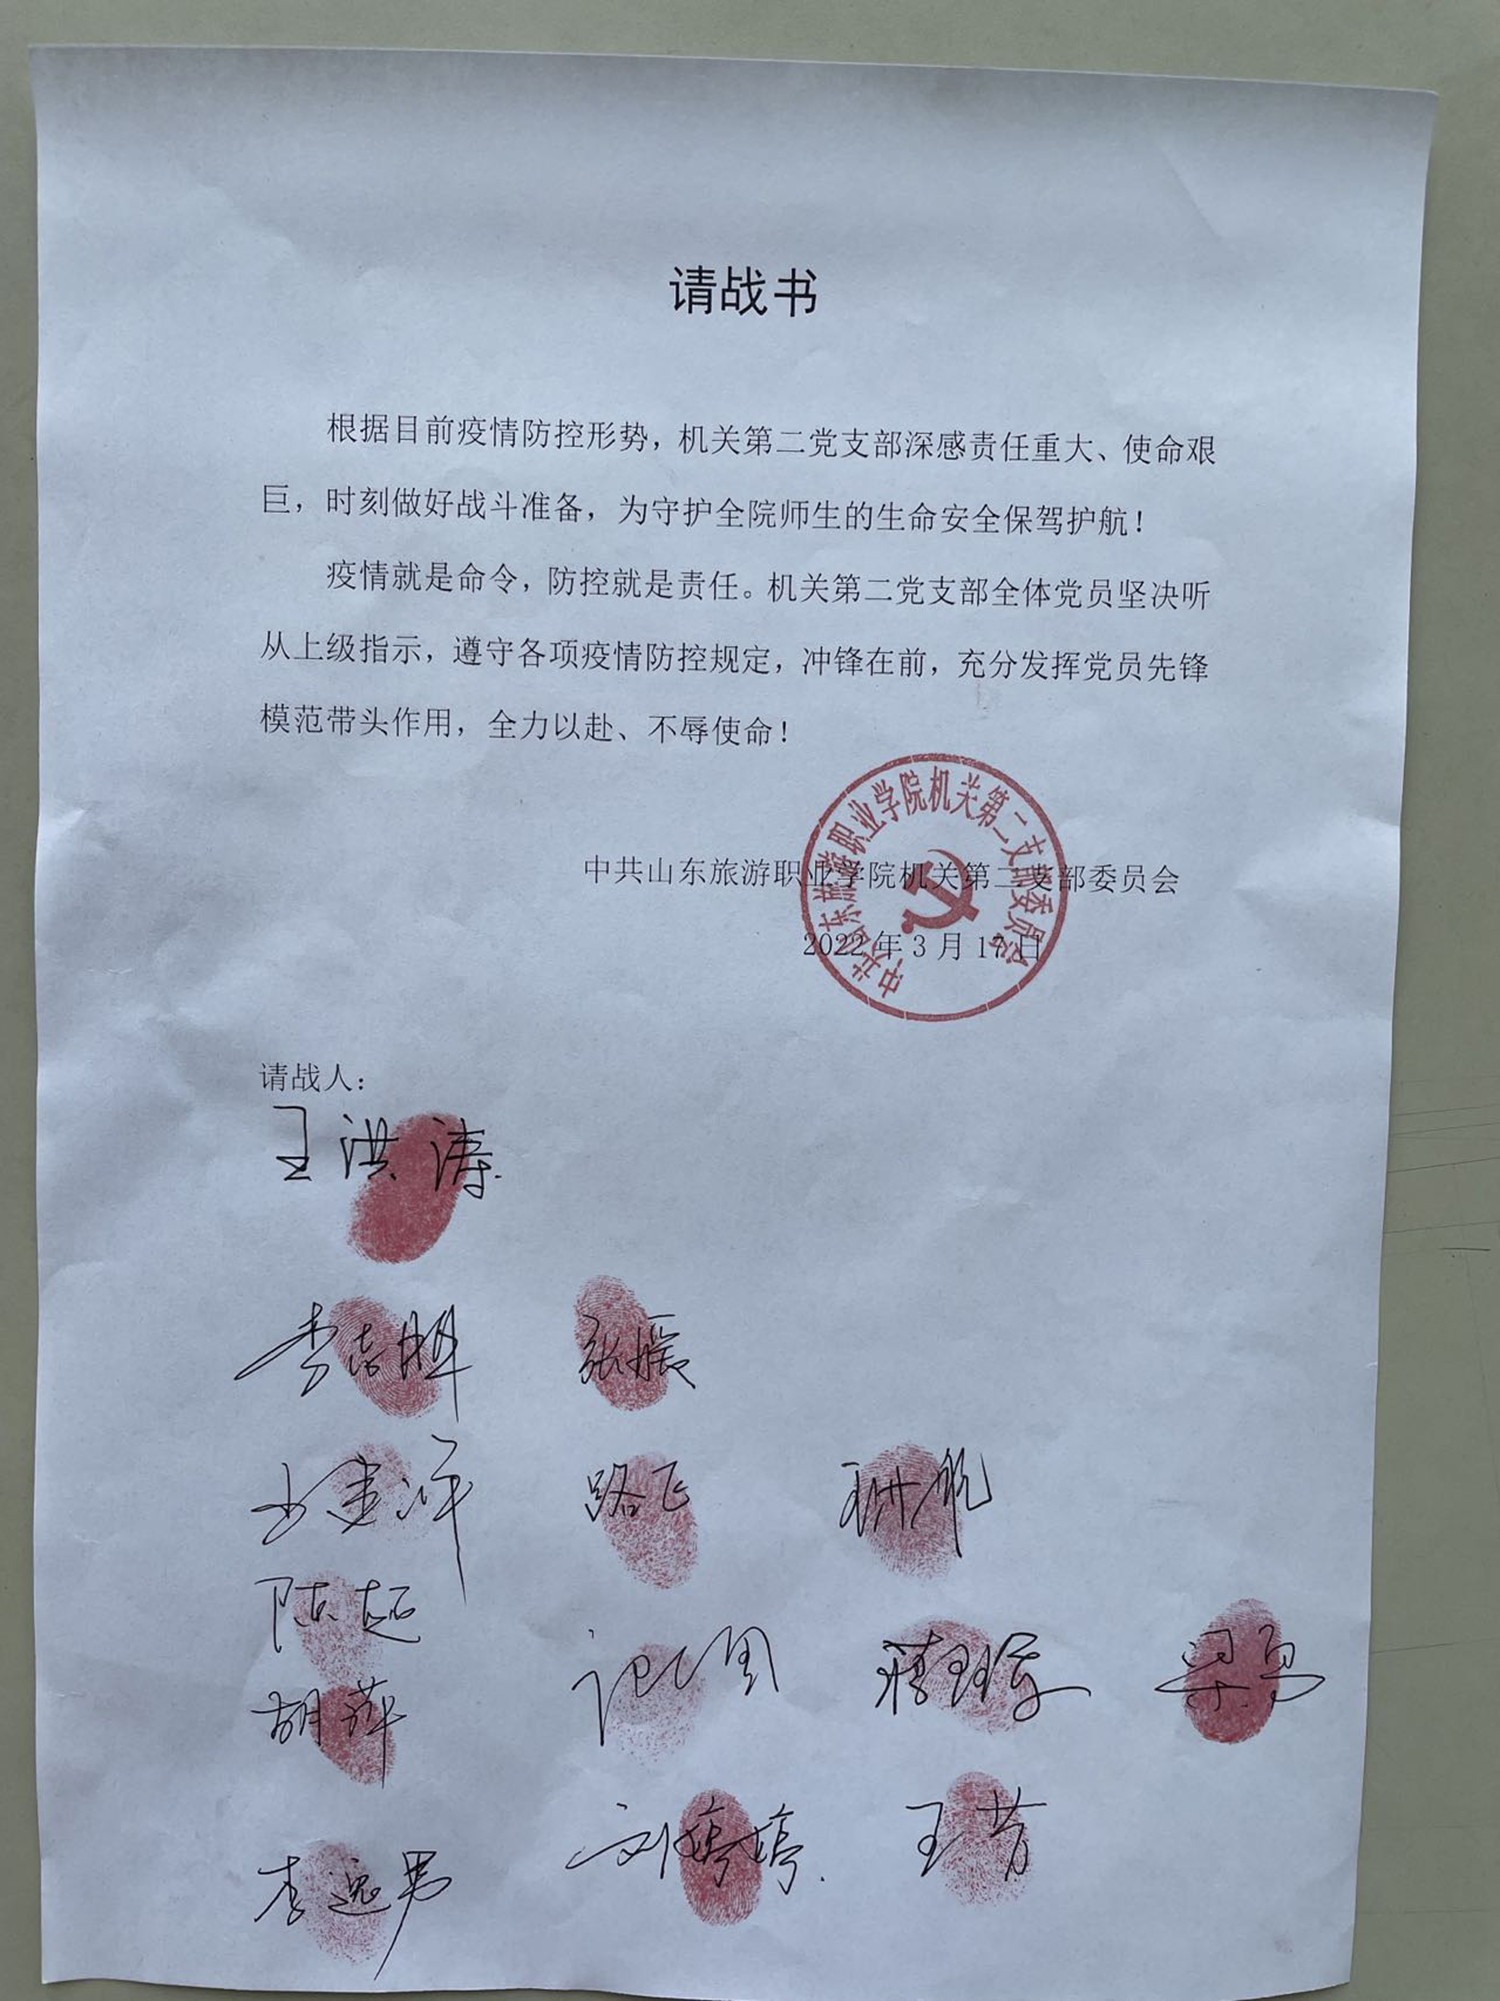 请战书
根据目前疫情防控形势，机关第二党支部深感责任重大、使命艰
巨，时刻做好战斗准备，为守护全院师生的生命安全保驾护航！
疫情就是命令，防控就是责任。机关第二党支部全体党员坚决听
从上级指示，遵守各项疫情防控规定，冲锋在前，充分发挥党员先锋
模范带头作用，全力以赴、不辱使命！
中共山东旅游职业学院机关第二支部委员会
2022年3月17日
中共山东旅游职业学院机关第二支部委员会
请战人：
王洪涛
张媛
路飞
陈超
梁勇
胡萍
刘婷婷 王芳
李逸男